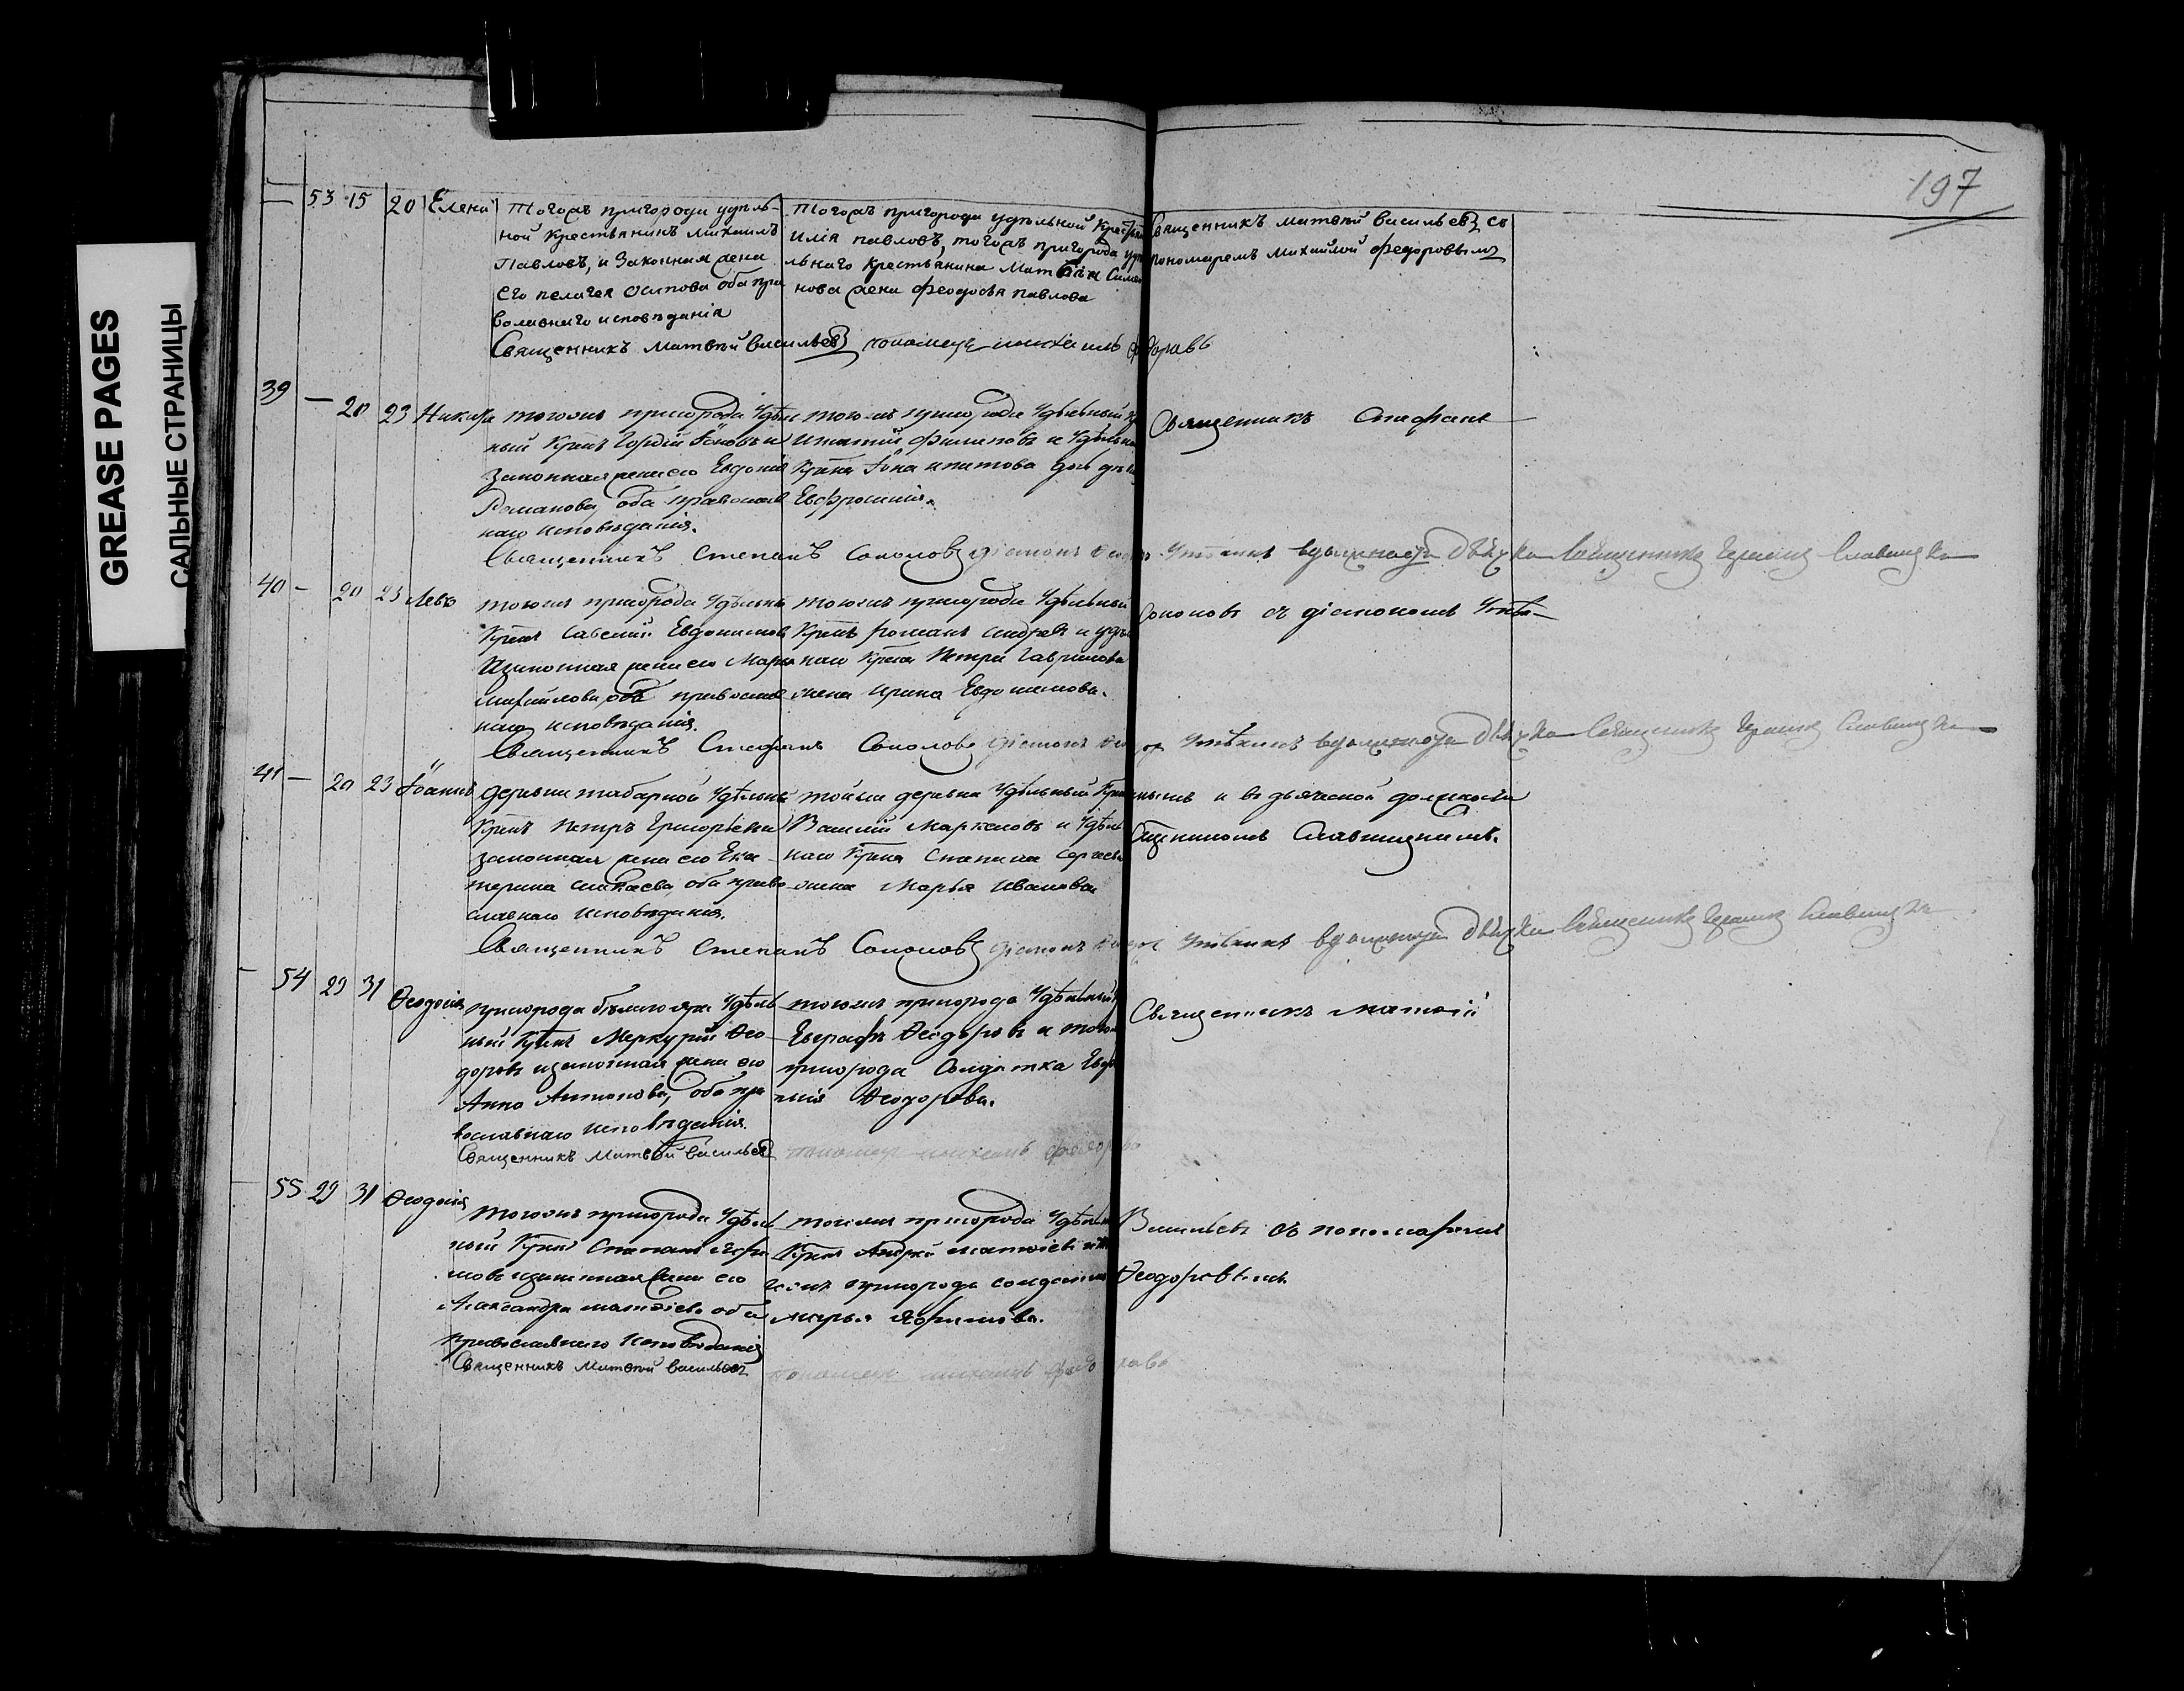 GREASE PAGES
САЛЬНЫЕ СТРАНИЦЫ
197
53 15 20 Елена
Тогожъ пригорода удѣль-
ной Крестьянинъ Михаилъ
Павловъ, и Законная жена
Его пелагея осипова оба пра
вославнаго исповѣданія
Тогожъ пригорода удѣльной
Илія павловъ, тогожъ пригорода
льнаго крестьянина Матвѣя
нова жена феодосья павлова
Священникъ матвѣй васильевъ съ
пономаремъ михайлой федоровымъ
Священникъ матвѣй васильевъ пономарь михаилъ
39 — 20 23
тогожъ пригорода Удѣль
ный Крнъ Гордій и
законная жена его Евдокия
Романова, оба православ
наго исповѣданія.
тогожъ пригорода Удѣльный
Игнатій филиповъ и Удѣльна
Крна дочь дѣвка
Евфросинія.
Священникъ Стефанъ
Священникъ Степанъ Соколовъ діаконъ
40 — 20 23 Левъ
тогожъ пригорода Удѣльны
Крнъ Савелій Евдокимовъ
и законная жена его Марья
михайлова, оба православ
наго исповѣданія.
тогожъ пригорода Удѣльный
Крнъ романъ андреевъ и удѣ
наго Крна Петра Гаврилова
жена Ирина Евдокимова.
Соколовъ съ діакономъ
Священникъ Стефанъ Соколовъ діаконъ
41 — 20 23 Іоаннъ
деревни табарной Удѣльны
Крнъ Петръ Григорьевъ и
законная жена его Ека-
терина оба право
славнаго исповѣданія.
тойже деревни Удѣльный Крн
Василій Маркеловъ и Удѣль
наго Крна Степана Сергѣева
жена Марья Иванова
и въ дьяческой должности
Священникъ Степанъ Соколовъ діаконъ
54 29 31 Ѳеодосія
пригорода бѣлаго яра Удѣль
ный Крнъ Меркурій Ѳео-
доровъ и законная жена его
Анна Антонова, оба пра
вославнаго исповѣданія.
тогожъ пригорода Удѣльный
Евграфъ Ѳеодоровъ и тогожъ
пригорода Солдатка
Ѳеодорова.
Священникъ матвѣй
Священникъ Матвѣй васильевъ пономарь михаилъ
55 29 31 Ѳеодосія
тогожъ пригорода Удѣль
ный Крнъ Степанъ
мовъ и законная жена его
Александра матвѣева оба
православнаго исповѣданія
тогожъ пригорода Удѣльн
Крнъ Андрей матвѣевъ и то
гожъ пригорода солдатка
марья Ефимова.
Васильевъ съ пономаремъ
Ѳеодоровымъ.
Священникъ Матвѣй васильевъ
пономарь михаилъ